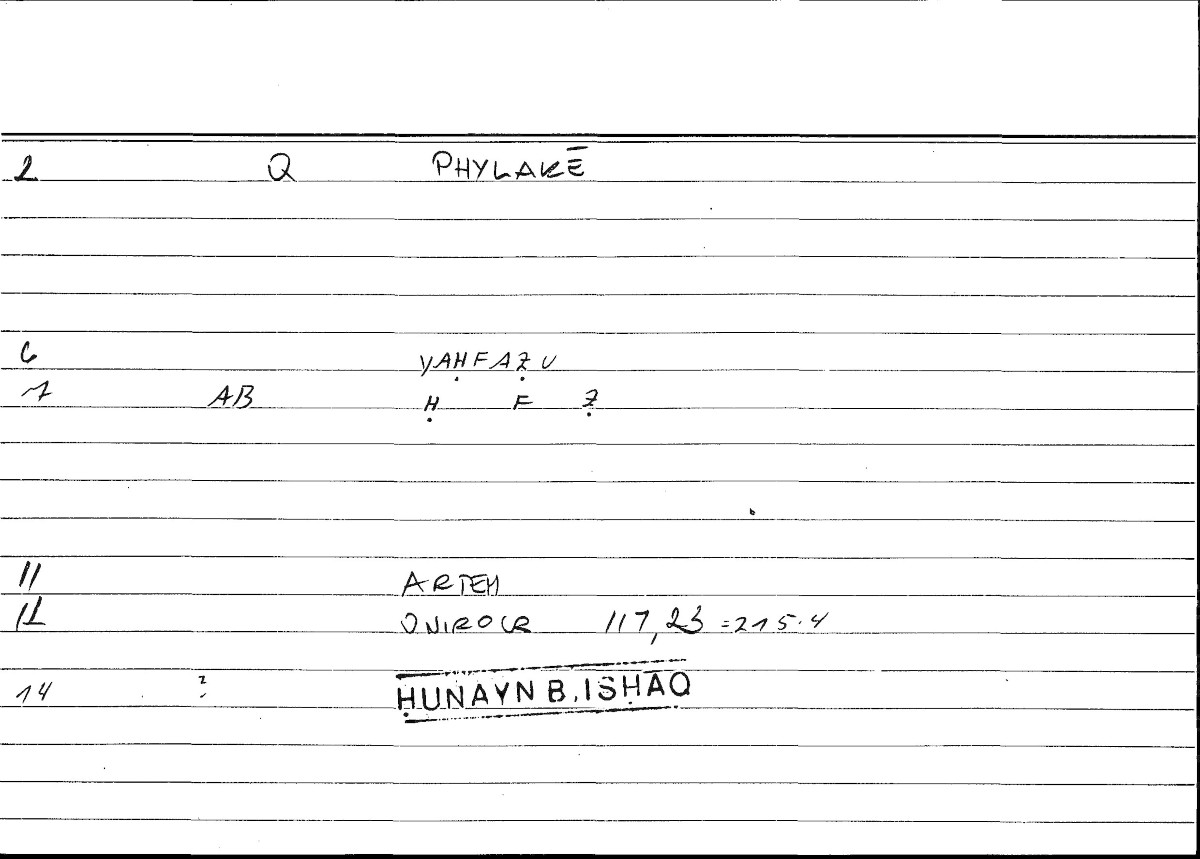 2 Q PHYLAKĒ
6 YAḤFAẒU
7 AB Ḥ F Ẓ
11 ARTEM
12 ONIROCR 117,23 =215.4
14 ? ḤUNAYN B. ISḤĀQ